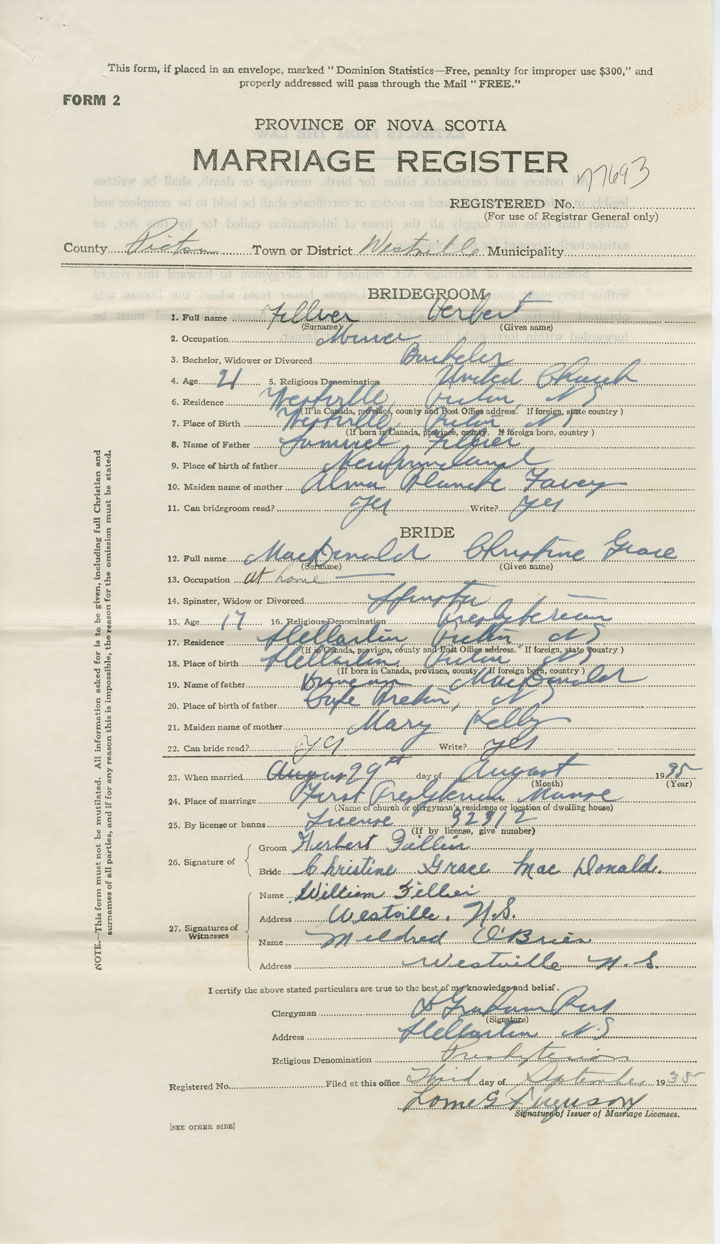 This form, if placed in an envelope, marked "Dominion Statistics—Free, penalty for improper use $300," and
properly addressed will pass through the Mail "FREE."
FORM 2
PROVINCE OF NOVA SCOTIA
MARRIAGE REGISTER
77693
REGISTERED No.
(For use of Registrar General only)
County Pictou Town or District Westville Municipality
BRIDEGROOM
1. Full name Fillier Herbert
(Surname) (Given name)
2. Occupation Miner
3. Bachelor, Widower or Divorced Bachelor
4. Age 21 5. Religious Denomination United Church
6. Residence Westville, Pictou, NS
(If in Canada, province, county and Post Office address. If foreign, state country)
7. Place of Birth Westville Pictou NS
(If born in Canada, province, county. If foreign born, country)
8. Name of Father Samuel Fillier
9. Place of birth of father Newfoundland
10. Maiden name of mother Alma Blanche Favey
11. Can bridegroom read? Yes Write? Yes
BRIDE
12. Full name MacDonald Christine Grace
(Surname) (Given name)
13. Occupation at home
14. Spinster, Widow or Divorced Spinster
15. Age 17 16. Religious Denomination Presbyterian
17. Residence Stellarton Pictou, NS
(If in Canada, province, county and Post Office address. If foreign, state country)
18. Place of birth Stellarton Pictou NS
(If born in Canada, province, county. If foreign born, country)
19. Name of father Duncan MacDonald
20. Place of birth of father Cape Breton, NS
21. Maiden name of mother Mary Kelly
22. Can bride read? Yes Write? yes
23. When married 29th day of August 1935
(Month) (Year)
24. Place of marriage First Presbyterian Manse
(Name of church or clergyman's residence or location of dwelling house)
25. By license or banns License 32312
(If by license, give number)
26. Signature of
Groom Herbert Fillier
Bride Christine Grace Mac Donald.
27. Signatures of Witnesses
Name William Fillier
Address Westville, N.S.
Name Mildred O'Brien
Address Westville N.S.
I certify the above stated particulars are true to the best of my knowledge and belief.
Clergyman D Graham Ross
(Signature)
Address Stellarton NS
Religious Denomination Presbyterian
Registered No. Filed at this office Third day of September 1935
Lorne G Ferguson
Signature of Issuer of Marriage Licenses.
[SEE OTHER SIDE]
NOTE.—This form must not be mutilated. All information asked for is to be given, including full Christian and
surnames of all parties, and if for any reason this is impossible, the reason for the omission must be stated.